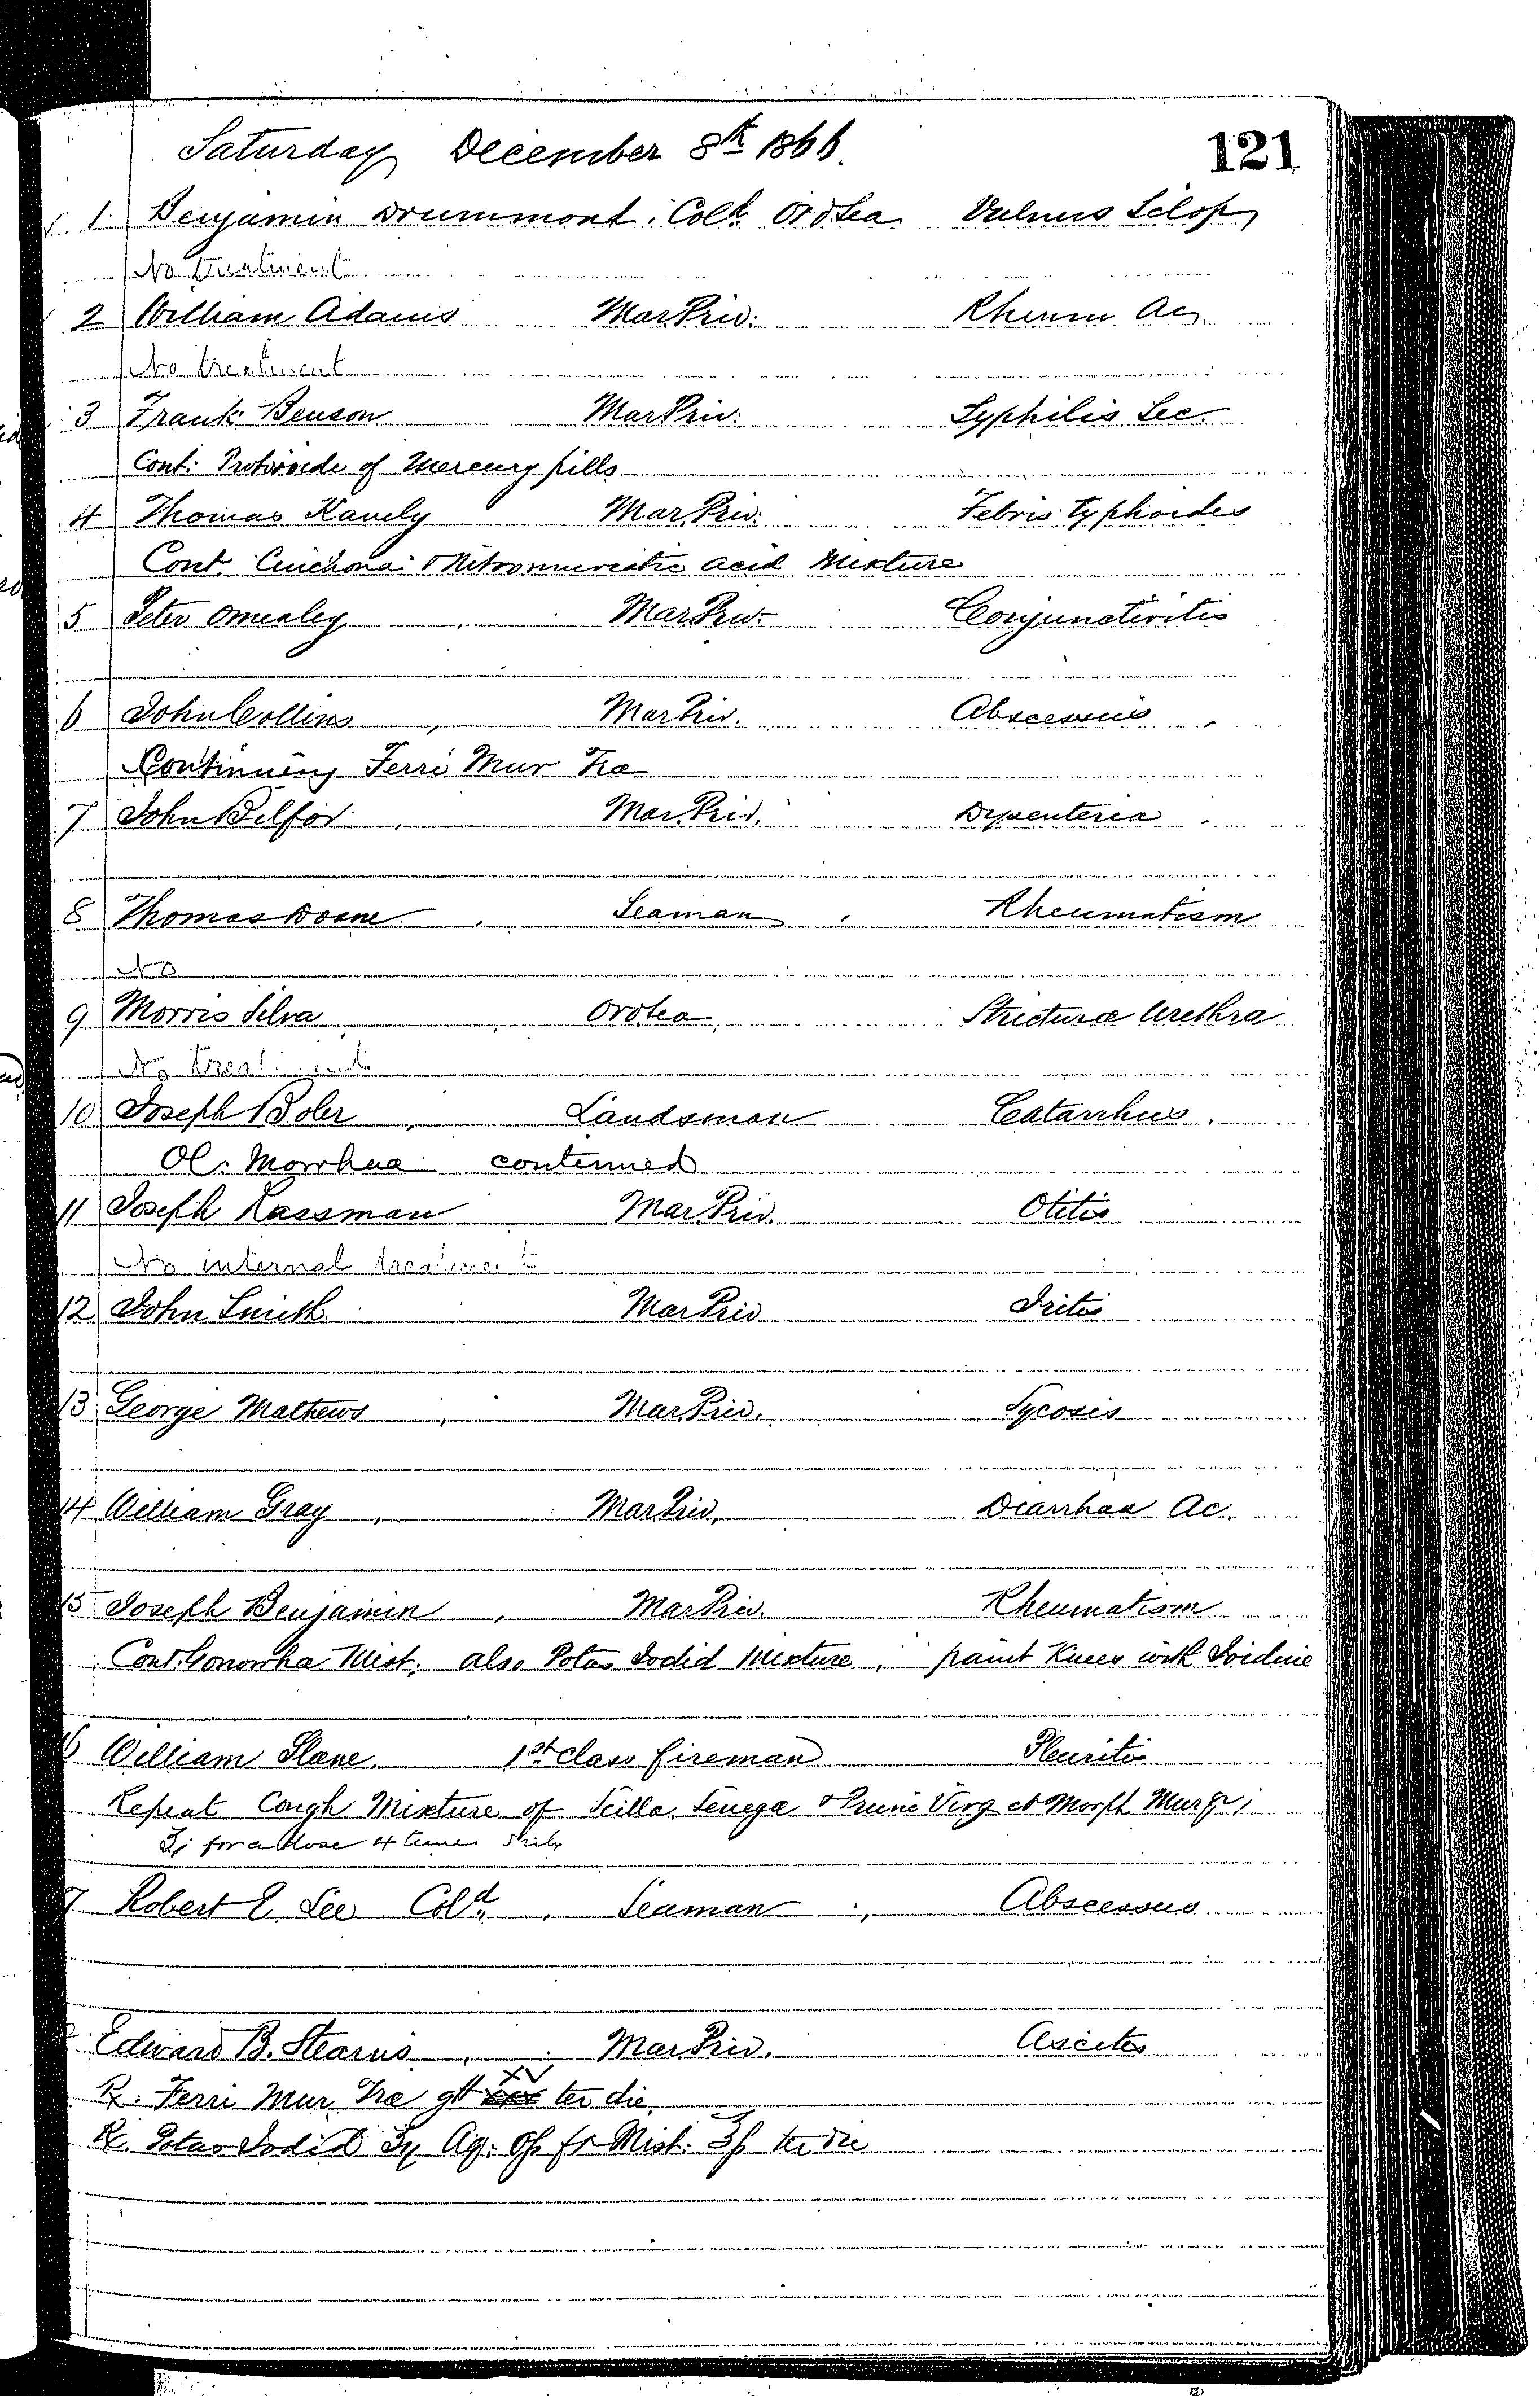 Saturday December 8th 1866. 121
1 Benjamin Drummond. Cold. Ord Sea Vulnus Sclop
No treatment
2 William Adams Mar. Priv. Rheum. Ac.
No treatment
3 Frank Benson Mar Priv. Syphilis Sec.
Cont. Protiodide of Mercury pills
4 Thomas Kanely Mar. Priv. Febris Typhoides
Cont. Cinchona & Nitromuriatic acid Mixture
5 Peter Omealey Mar. Priv. Conjunctivitis
6 John Collins Mar Priv. Abscessus
Continuing Ferri Mur Tra
7 John Bilfor Mar. Priv. Dysenteria
8 Thomas Doane Seaman Rheumatism
No
9 Morris Silva Ord Sea Strictura Urethra
No treatment
10 Joseph Boler Landsman Catarrhus.
Ol. Morrhua continued
11 Joseph Kassman Mar. Priv. Otitis
No internal treatment
12 John Smith Mar Priv Iritis
13 George Mathews Mar. Priv. Sycosis
14 William Gray Mar Priv. Diarrhaa Ac.
15 Joseph Benjamin Mar Priv. Rheumatism
Cont. Gonorrha Mist. also Potas Iodid Mixture, paint Knees with Ioidine
6 William Slane. 1st Class fireman Pleuritis
Repeat Cough Mixture of Scilla, Senega & Pruni Virg et Morph Mur gr i
for a dose 4 times
7 Robert E Lee Cold. Seaman Abscessus
Edward B. Stearns Mar. Priv. Ascites
xv
℞. Ferri Mur Tra gtt xxx ter die.
℞. Potas Iodid Aq. ft Mist. ter die